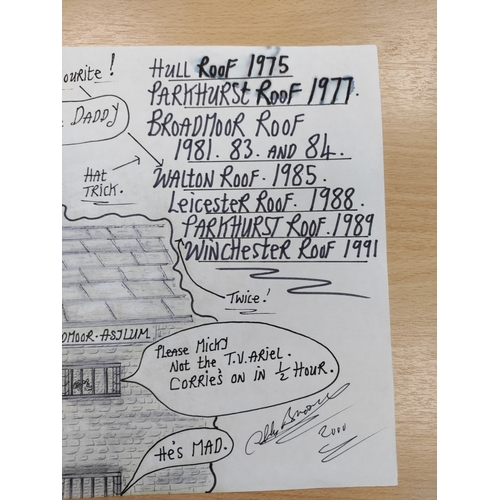 OURITE!
DADDY
HULL ROOF 1975
PARKHURST ROOF 1977.
BROADMOOR ROOF
1981. 83. AND 84.
HAT
TRICK.
WALTON ROOF. 1985.
LEICESTER ROOF. 1988.
PARKHURST ROOF. 1989
WINCHESTER ROOF 1991
TWICE!
DMOOR-ASYLUM
PLEASE MICKY
NOT THE T.V. ARIEL.
CORRIE'S ON IN 1/2 HOUR.
2000
HE'S MAD.